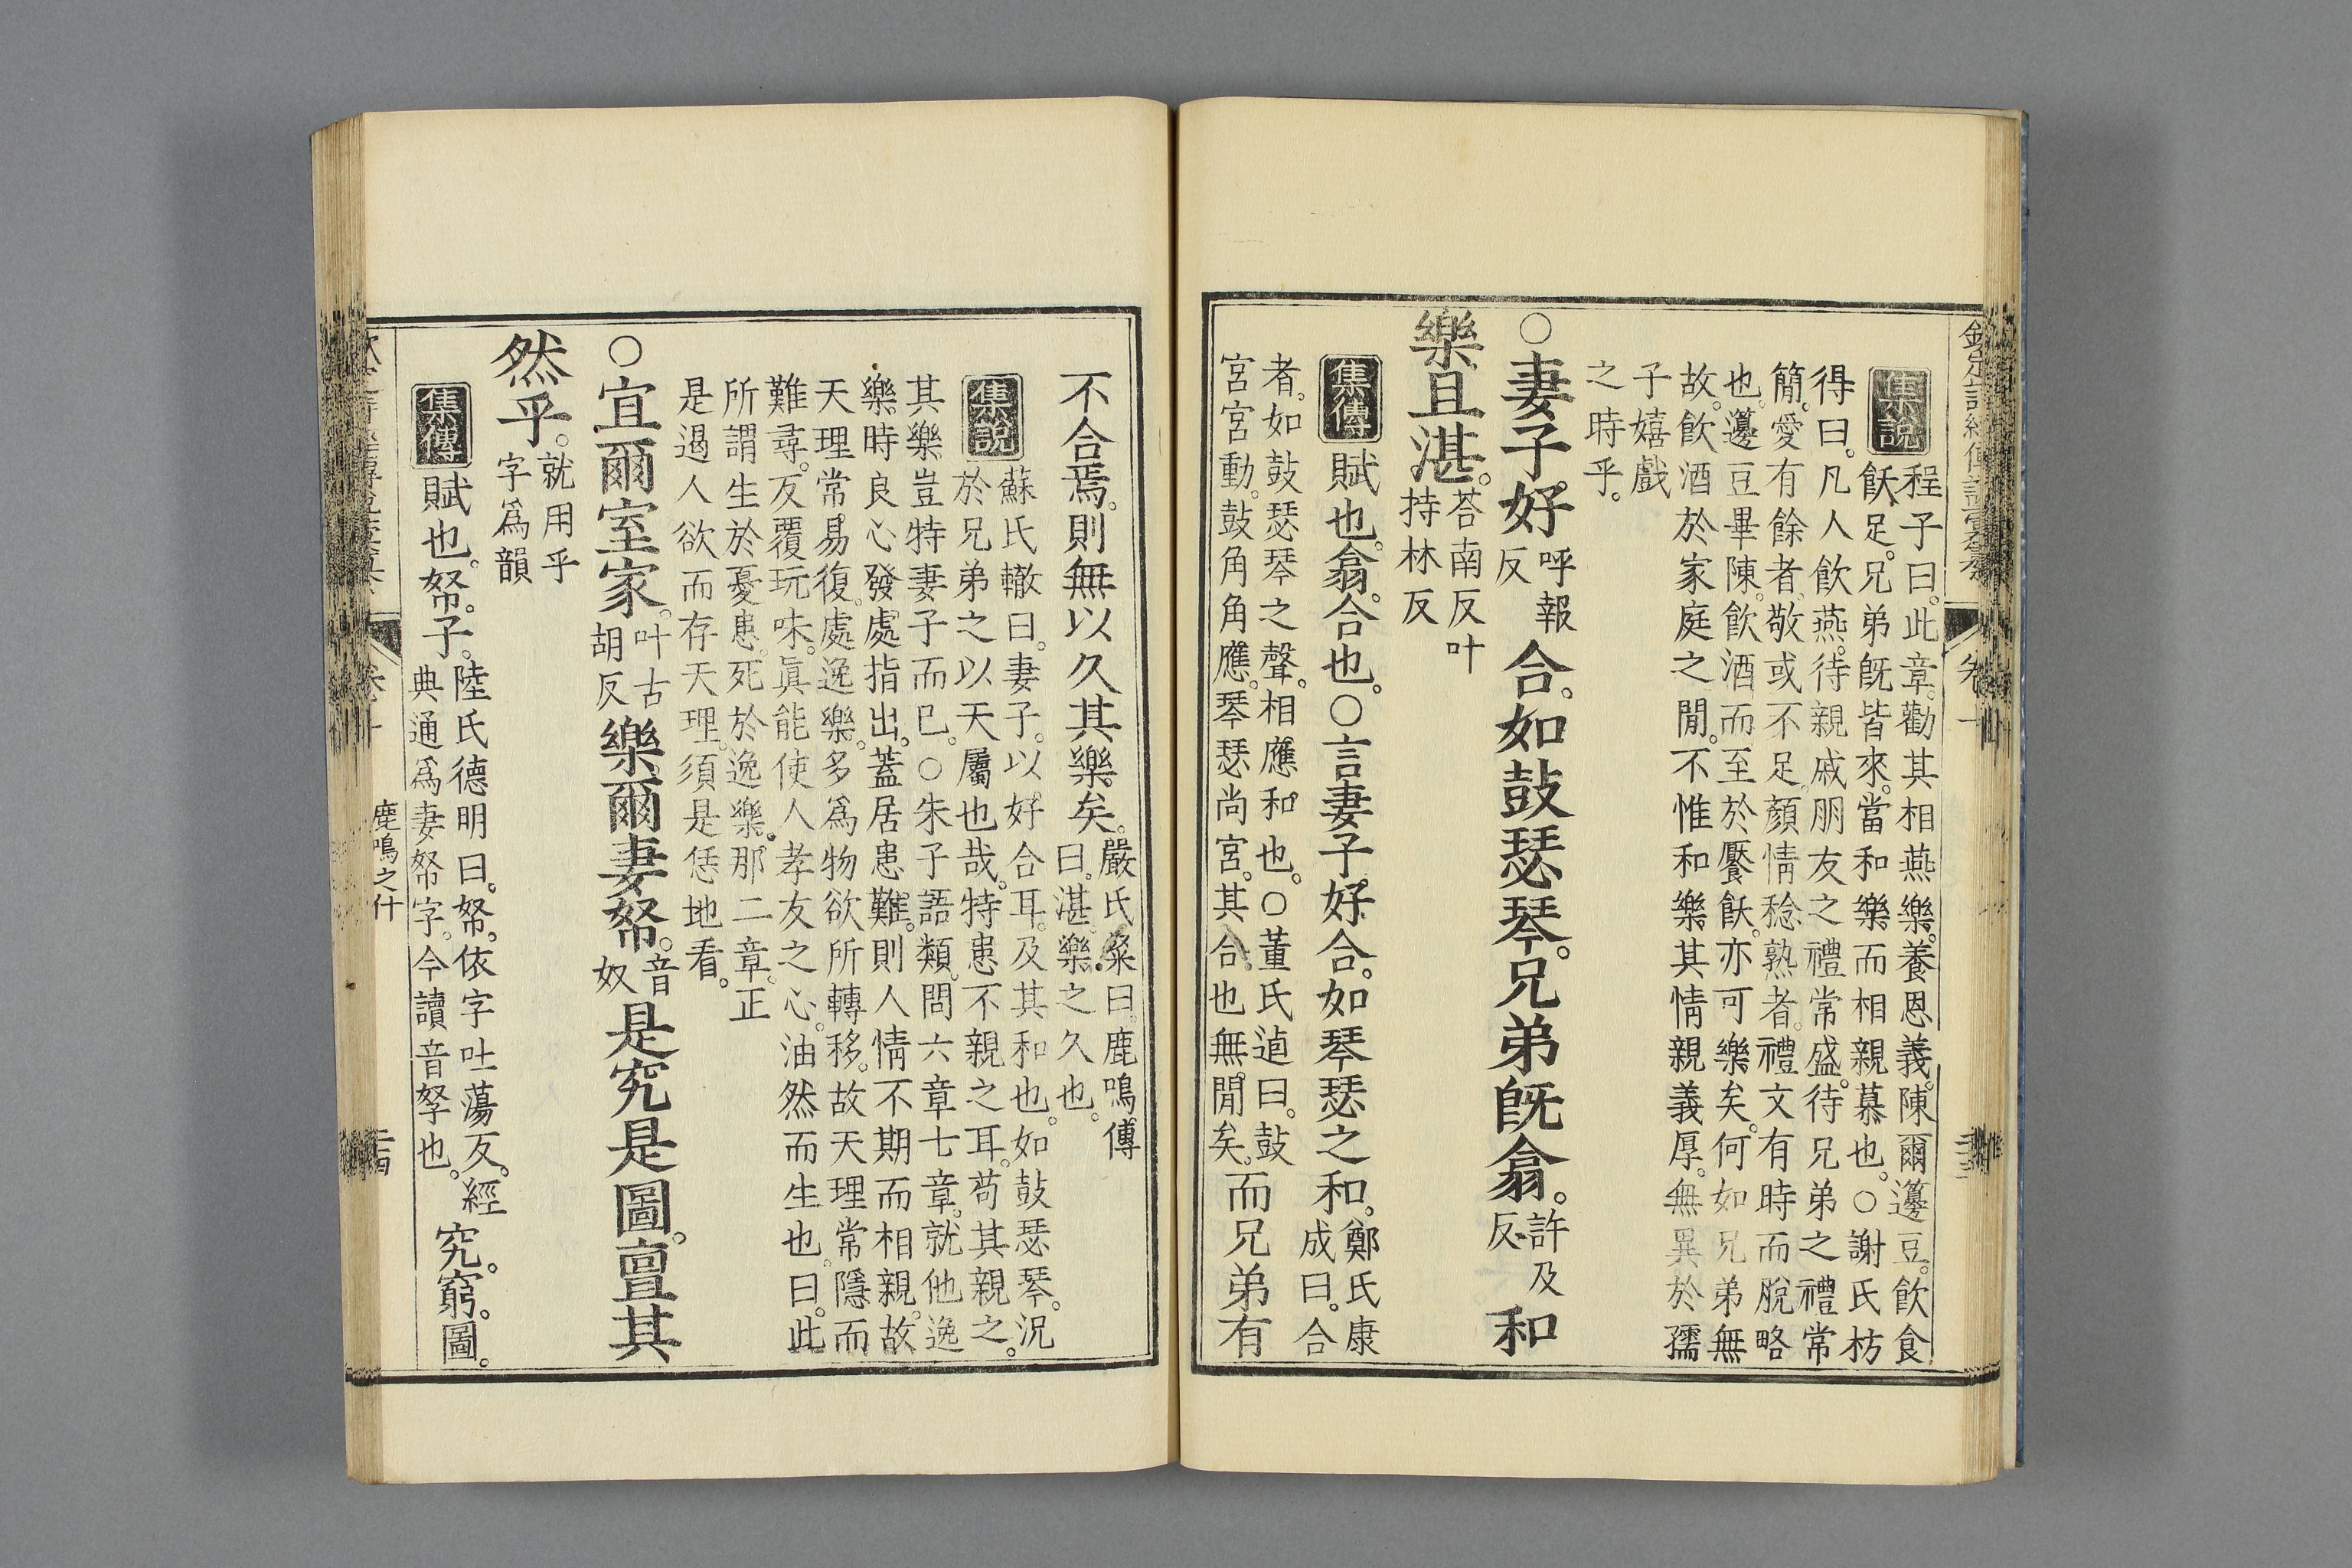 欽定詩經傳說彙纂 卷十
集說 程子曰。此章勸其相燕樂。養恩義。陳爾籩豆。飲食
飫足。兄弟旣皆來。當和樂而相親慕也。○謝氏枋
得曰。凡人飲燕。待親戚朋友之禮常盛。待兄弟之禮常
簡。愛有餘者。敬或不足。顏情稔熟者。禮文有時而脫略
也。籩豆畢陳。飲酒而至於饜飫。亦可樂矣。何如兄弟無
故。飲酒於家庭之閒。不惟和樂其情親義厚。無異於孺
子嬉戲
之時乎。
○妻子好呼報反合。如鼓瑟琴。兄弟旣翕。許及反和
樂且湛。荅南反叶持林反
集傳 賦也。翕。合也。○言妻子好合。如琴瑟之和。鄭氏康成曰。合
者。如鼓瑟琴之聲。相應和也。○董氏逌曰。鼓
宮宮動。鼓角角應。琴瑟尚宮。其合也無閒矣。而兄弟有
不合焉。則無以久其樂矣。嚴氏粲曰。鹿鳴傳
曰。湛。樂之久也。
集說 蘇氏轍曰。妻子。以好合耳。及其和也。如鼓瑟琴。況
於兄弟之以天屬也哉。特患不親之耳。苟其親之。
其樂豈特妻子而已。○朱子語類。問六章七章。就他逸
樂時良心發處指出。蓋居患難。則人情不期而相親。故
天理常易復。處逸樂。多爲物欲所轉移。故天理常隱而
難尋。反覆玩味。眞能使人孝友之心。油然而生也。曰。此
所謂生於憂患。死於逸樂。那二章。正
是遏人欲而存天理。須是恁地看。
○宜爾室家。叶古胡反樂爾妻帑。音奴是究是圖。亶其
然乎。就用乎字爲韻
集傳 賦也。帑。子。陸氏德明曰。帑。依字吐蕩反。經
典通爲妻帑字。今讀音孥也。究。窮。圖。
卷十 鹿鳴之什 二十四